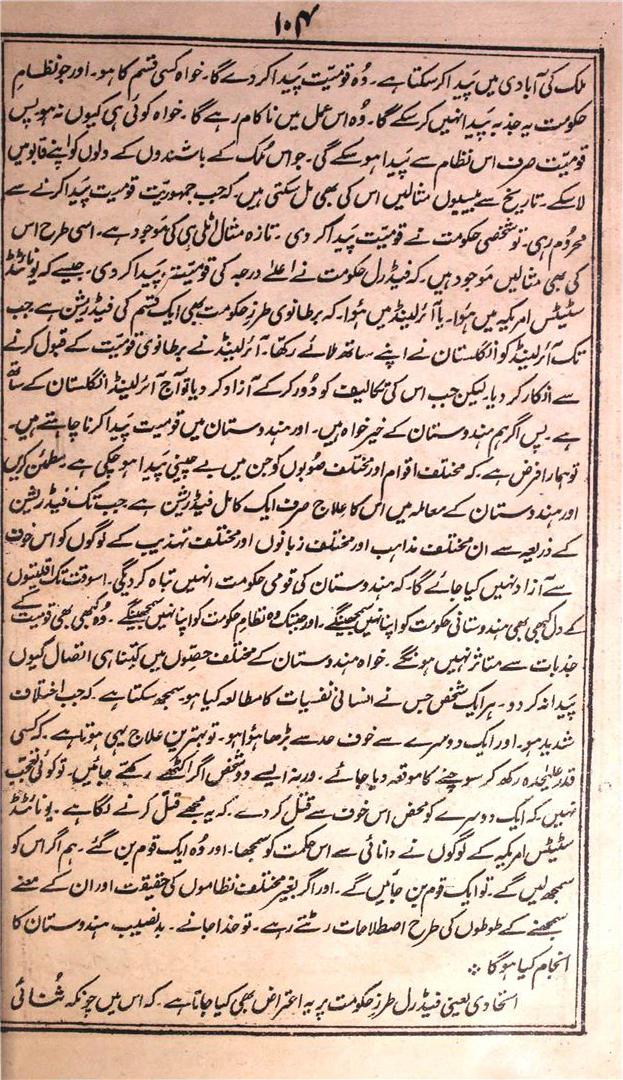 ۱۰۴
ملک کی آبادی میں پَیدا کر سکتا ہے۔ وُہ قومیّت پَیدا کر دے گا۔ خواہ کسی قسم کا ہو۔ اور جو نظامِ
حکومت یہ جذبہ پَیدا نہیں کر سکے گا۔ وُہ اس عمل میں ناکام رہے گا۔ خواہ کوئی ہی کیوں نہ ہو پس
قومیّت صرف اس نظام سے پَیدا ہو سکے گی۔ جو اس مُلک کے باشندوں کے دلوں کو اپنے قابو میں
لا سکے۔ تاریخ سے بیسیوں مثالیں اس کی بھی مل سکتی ہیں۔ کہ جب جمہوریّت قومیت پَیدا کرنے سے
محروم رہی۔ تو شخصی حکومت نے قومیّت پَیدا کر دی۔ تازہ مثال اٹلی ہی کی موجود ہے۔ اسی طرح اس
کی بھی مثالیں موجود ہیں۔ کہ فیڈرل حکومت نے اعلےٰ درجہ کی قومیّت پیدا کر دی۔ جیسے کہ یونائٹڈ
سٹیٹس امریکہ میں ہؤا۔ یا آئرلینڈ میں ہؤا۔ کہ برطانوی طرزِ حکومت بھی ایک قسم کی فیڈریشن ہے جب
تک آئرلینڈ کو انگلستان نے اپنے ساتھ ملائے رکھا۔ آئرلینڈ نے برطانوی قومیّت کے قبول کرنے
سے انکار کر دیا۔ لیکن جب اس کی تکالیف کو دُور کر کے آزاد کر دیا تو آج آئرلینڈ انگلستان کے ساتھ
ہے۔ پس اگر ہم ہندوستان کے خیر خواہ ہیں۔ اور ہندوستان میں قومیت پَیدا کرنا چاہتے ہیں۔
تو ہمارا فرض ہے کہ مختلف اقوام اور مختلف صُوبوں کو جن میں بے چینی پَیدا ہو چکی ہے۔ مطمئن کریں
اور ہندوستان کے معاملہ میں اس کا علاج صرف ایک کامل فیڈریشن ہے جب تک فیڈریشن
کے ذریعہ سے ان مختلف مذاہب اور مختلف زبانوں اور مختلف تہذیب کے لوگوں کو اس خوف
سے آزاد نہیں کیا جائے گا۔ کہ ہندوستان کی قومی حکومت انہیں تباہ کر دیگی۔ اسوقت تک اقلیّتوں
کے دل کبھی بھی ہندوستانی حکومت کو اپنا نہیں سمجھینگے۔ اور جبتک وہ نظامِ حکومت کو اپنا نہیں سمجھینگے۔ وُہ کبھی بھی قومیّت کے
جذبات سے متاثر نہیں ہونگے۔ خواہ ہندوستان کے مختلف حصّوں میں کتنا ہی اتصال کیوں
پَیدا نہ کر دو۔ ہر ایک شخص جس نے انسانی نفسیات کا مطالعہ کیا ہو۔ سمجھ سکتا ہے۔ کہ جب اختلاف
شدید ہو۔ اور ایک دوسرے سے خوف حد سے بڑھا ہؤا ہو۔ تو بہترین علاج یہی ہوتا ہے۔ کہ کسی
قدر علیٰحدہ رکھ کر سوچنے کا موقعہ دیا جائے۔ ورنہ ایسے دو شخص اگر اکٹھے رکھے جائیں۔ تو کوئی تعجّب
نہیں۔ کہ ایک دوسرے کو محض اس خوف سے قتل کر دے۔ کہ یہ مجھے قتل کرنے لگا ہے۔ یونائٹڈ
سٹیٹس امریکہ کے لوگوں نے دانائی سے اس حکمت کو سمجھا۔ اور وُہ ایک قوم بن گئے۔ ہم اگر اس کو
سمجھ لیں گے۔ تو ایک قوم بن جائیں گے۔ اور اگر بغیر مختلف نظاموں کی حقیقت اور ان کے معنے
سمجھنے کے طوطوں کی طرح اصطلاحات رٹتے رہے۔ تو خدا جانے۔ بدنصیب ہندوستان کا
انجام کیا ہو گا ؞
اتحادی یعنی فیڈرل طرزِ حکومت پر یہ اعتراض بھی کیا جاتا ہے۔ کہ اس میں چونکہ ثُنائی